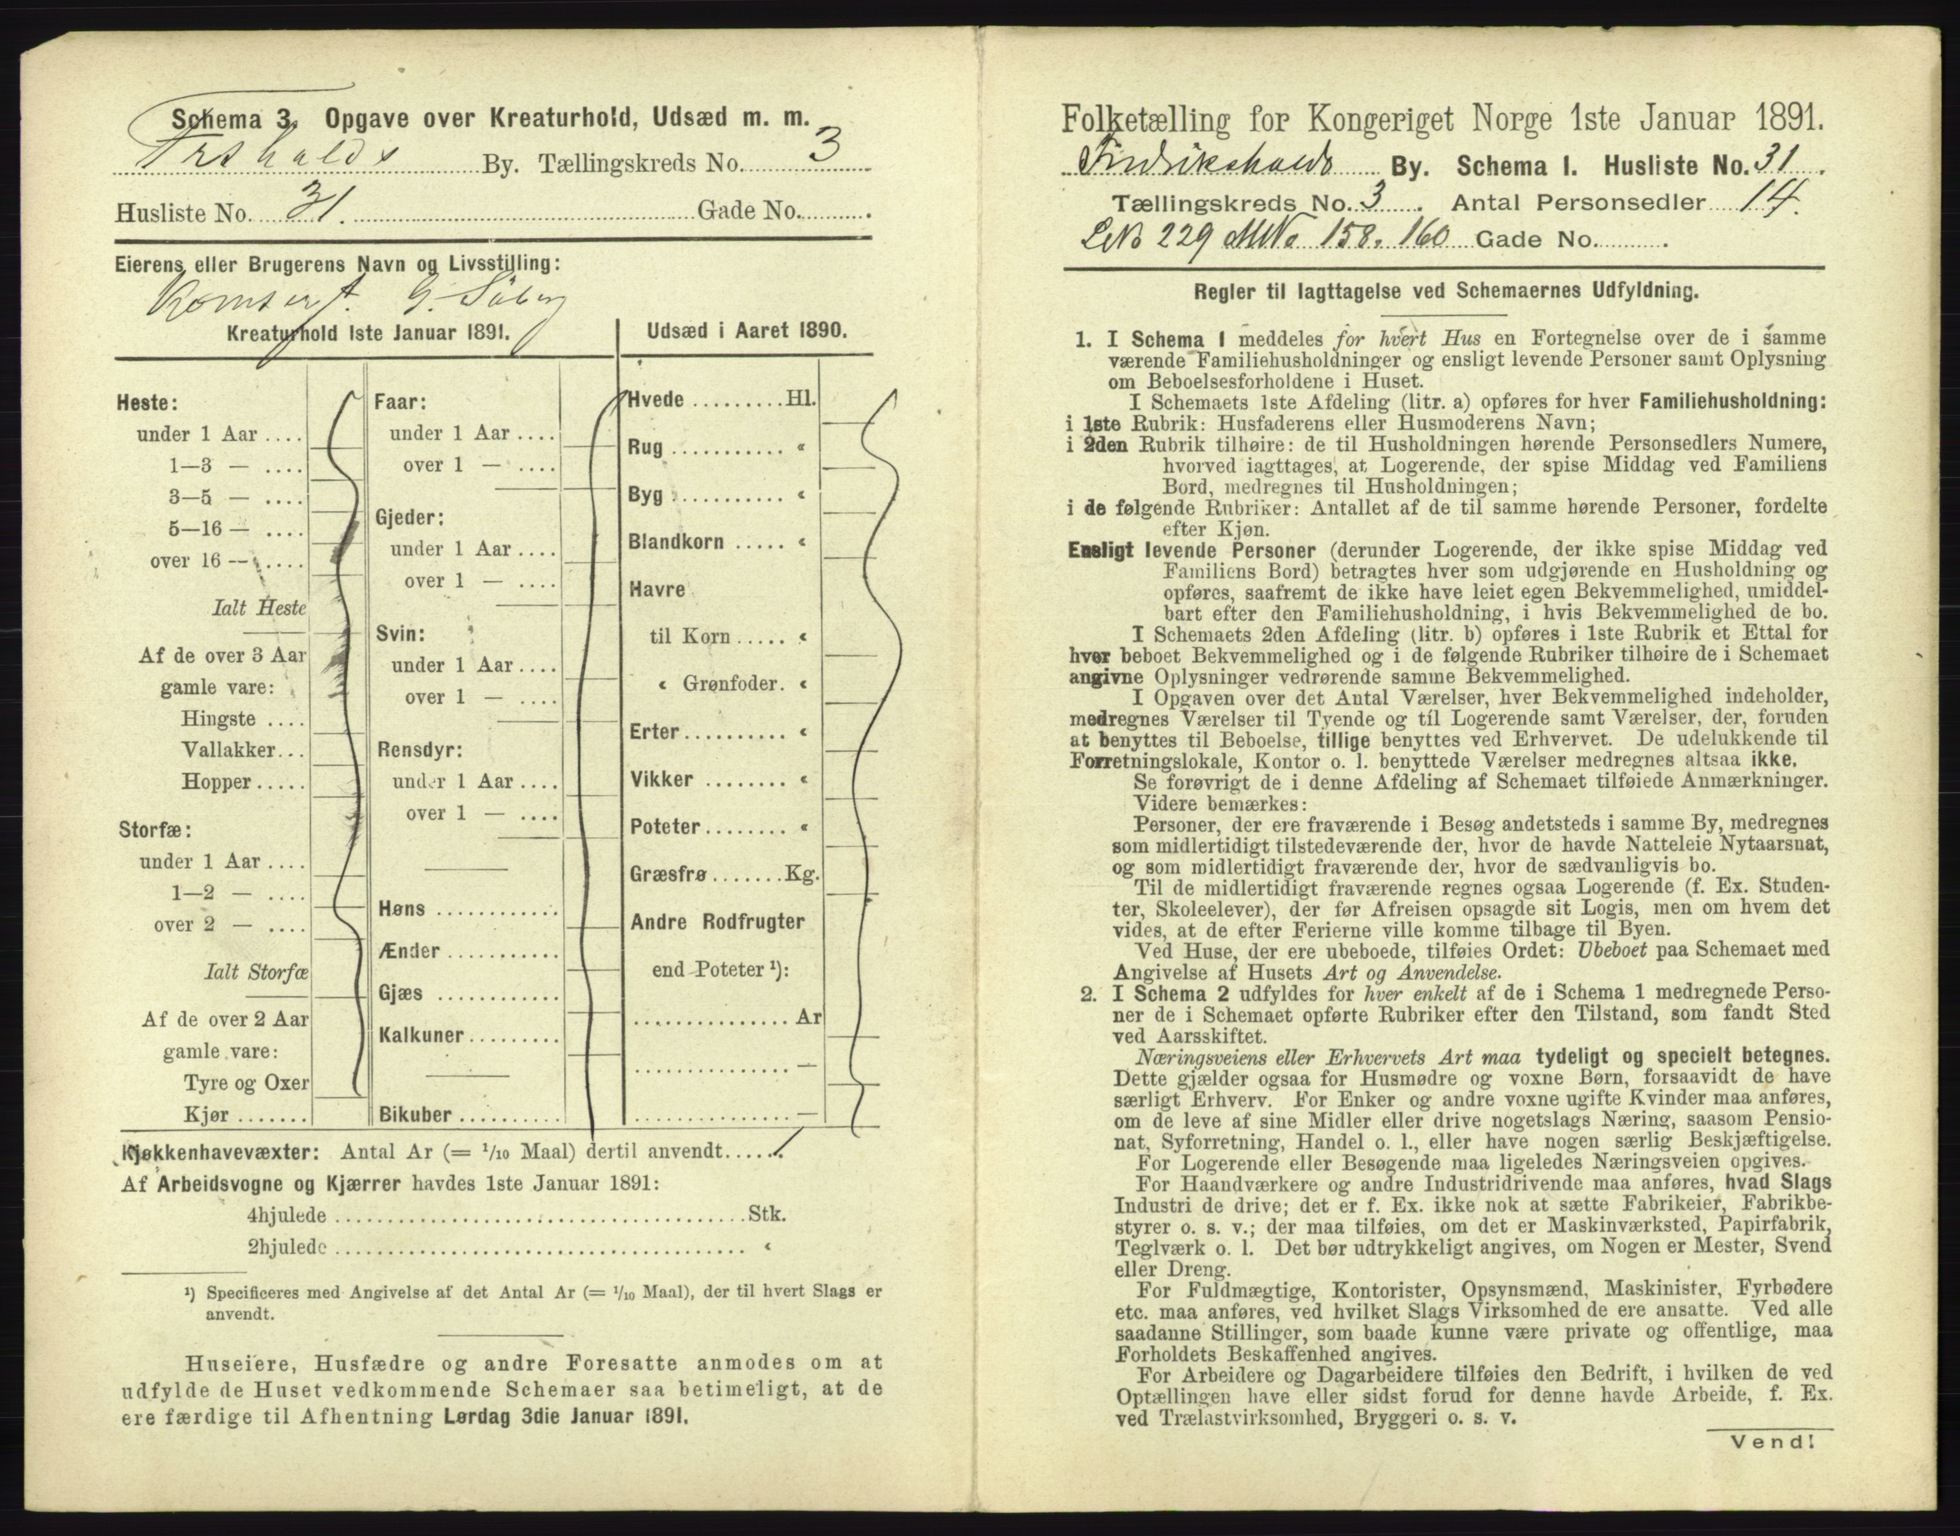 Schema 3. Opgave over Kreaturhold, Udsæd m. m.
Frshalds By. Tællingskreds No. 3
Husliste No. 31. Gade No. .
Eierens eller Brugerens Navn og Livsstilling:
G. Söberg
Kreaturhold 1ste Januar 1891.
Heste:
under 1 Aar ....
1—3 — ....
3—5 — ....
5—16 — ....
over 16 — ....
Ialt Heste
Af de over 3 Aar
gamle vare:
Hingste ....
Vallakker...
Hopper.....
Storfæ:
under 1 Aar ....
1—2 — ....
over 2 — ....
Ialt Storfæ
Af de over 2 Aar
gamle vare:
Tyre og Oxer
Kjør .......
Faar:
under 1 Aar ....
over 1 — ....
Gjeder:
under 1 Aar ....
over 1 — ....
Svin:
under 1 Aar ....
over 1 — ....
Rensdyr:
under 1 Aar ....
over 1 — ....
Høns ............
Ænder ...........
Gjæs ............
Kalkuner.........
Bikuber ..........
Udsæd i Aaret 1890.
Hvede .........Hl.
Rug ........... «
Byg ........... «
Blandkorn ..... «
Havre
til Korn ..... «
« Grønfoder. «
Erter.......... «
Vikker ........ «
Poteter........ «
Græsfrø .......Kg.
Andre Rodfrugter
end Poteter ¹):
............... Ar
............... —
............... —
Kjøkkenhavevæxter: Antal Ar (= 1/10 Maal) dertil anvendt......
Af Arbeidsvogne og Kjærrer havdes 1ste Januar 1891:
4hjulede ........................................Stk.
2hjulede ........................................ «
¹) Specificeres med Angivelse af det Antal Ar (= 1/10 Maal), der til hvert Slags er
anvendt.
Huseiere, Husfædre og andre Foresatte anmodes om at
udfylde de Huset vedkommende Schemaer saa betimeligt, at de
ere færdige til Afhentning Lørdag 3die Januar 1891.
Folketælling for Kongeriget Norge 1ste Januar 1891.
Fredrikshalds By. Schema I. Husliste No. 31.
Tællingskreds No. 3. Antal Personsedler 14.
LNo 229 MNo 158. 160 Gade No. .
Regler til Iagttagelse ved Schemaernes Udfyldning.
1. I Schema 1 meddeles for hvert Hus en Fortegnelse over de i samme
værende Familiehusholdninger og ensligt levende Personer samt Oplysning
om Beboelsesforholdene i Huset.
I Schemaets 1ste Afdeling (litr. a) opføres for hver Familiehusholdning:
i 1ste Rubrik: Husfaderens eller Husmoderens Navn;
i 2den Rubrik tilhøire: de til Husholdningen hørende Personsedlers Numere,
hvorved iagttages, at Logerende, der spise Middag ved Familiens
Bord, medregnes til Husholdningen;
i de følgende Rubriker: Antallet af de til samme hørende Personer, fordelte
efter Kjøn.
Ensligt levende Personer (derunder Logerende, der ikke spise Middag ved
Familiens Bord) betragtes hver som udgjørende en Husholdning og
opføres, saafremt de ikke have leiet egen Bekvemmelighed, umiddel-
bart efter den Familiehusholdning, i hvis Bekvemmelighed de bo.
I Schemaets 2den Afdeling (litr. b) opføres i 1ste Rubrik et Ettal for
hver beboet Bekvemmelighed og i de følgende Rubriker tilhøire de i Schemaet
angivne Oplysninger vedrørende samme Bekvemmelighed.
I Opgaven over det Antal Værelser, hver Bekvemmelighed indeholder,
medregnes Værelser til Tyende og til Logerende samt Værelser, der, foruden
at benyttes til Beboelse, tillige benyttes ved Erhvervet. De udelukkende til
Forretningslokale, Kontor o. l. benyttede Værelser medregnes altsaa ikke.
Se forøvrigt de i denne Afdeling af Schemaet tilføiede Anmærkninger.
Videre bemærkes:
Personer, der ere fraværende i Besøg andetsteds i samme By, medregnes
som midlertidigt tilstedeværende der, hvor de havde Natteleie Nytaarsnat,
og som midlertidigt fraværende der, hvor de sædvanligvis bo.
Til de midlertidigt fraværende regnes ogsaa Logerende (f. Ex. Studen-
ter, Skoleelever), der før Afreisen opsagde sit Logis, men om hvem det
vides, at de efter Ferierne ville komme tilbage til Byen.
Ved Huse, der ere ubeboede, tilføies Ordet: Ubeboet paa Schemaet med
Angivelse af Husets Art og Anvendelse.
2. I Schema 2 udfyldes for hver enkelt af de i Schema 1 medregnede Perso-
ner de i Schemaet opførte Rubriker efter den Tilstand, som fandt Sted
ved Aarsskiftet.
Næringsveiens eller Erhvervets Art maa tydeligt og specielt betegnes.
Dette gjælder ogsaa for Husmødre og voxne Børn, forsaavidt de have
særligt Erhverv. For Enker og andre voxne ugifte Kvinder maa anføres,
om de leve af sine Midler eller drive nogetslags Næring, saasom Pensio-
nat, Syforretning, Handel o. l., eller have nogen særlig Beskjæftigelse.
For Logerende eller Besøgende maa ligeledes Næringsveien opgives.
For Haandværkere og andre Industridrivende maa anføres, hvad Slags
Industri de drive; det er f. Ex. ikke nok at sætte Fabrikeier, Fabrikbe-
styrer o. s. v.; der maa tilføies, om det er Maskinværksted, Papirfabrik,
Teglværk o. l. Det bør udtrykkeligt angives, om Nogen er Mester, Svend
eller Dreng.
For Fuldmægtige, Kontorister, Opsynsmænd, Maskinister, Fyrbødere
etc. maa anføres, ved hvilket Slags Virksomhed de ere ansatte. Ved alle
saadanne Stillinger, som baade kunne være private og offentlige, maa
Forholdets Beskaffenhed angives.
For Arbeidere og Dagarbeidere tilføies den Bedrift, i hvilken de ved
Optællingen have eller sidst forud for denne havde Arbeide, f. Ex.
ved Trælastvirksomhed, Bryggeri o. s. v.
Vend!